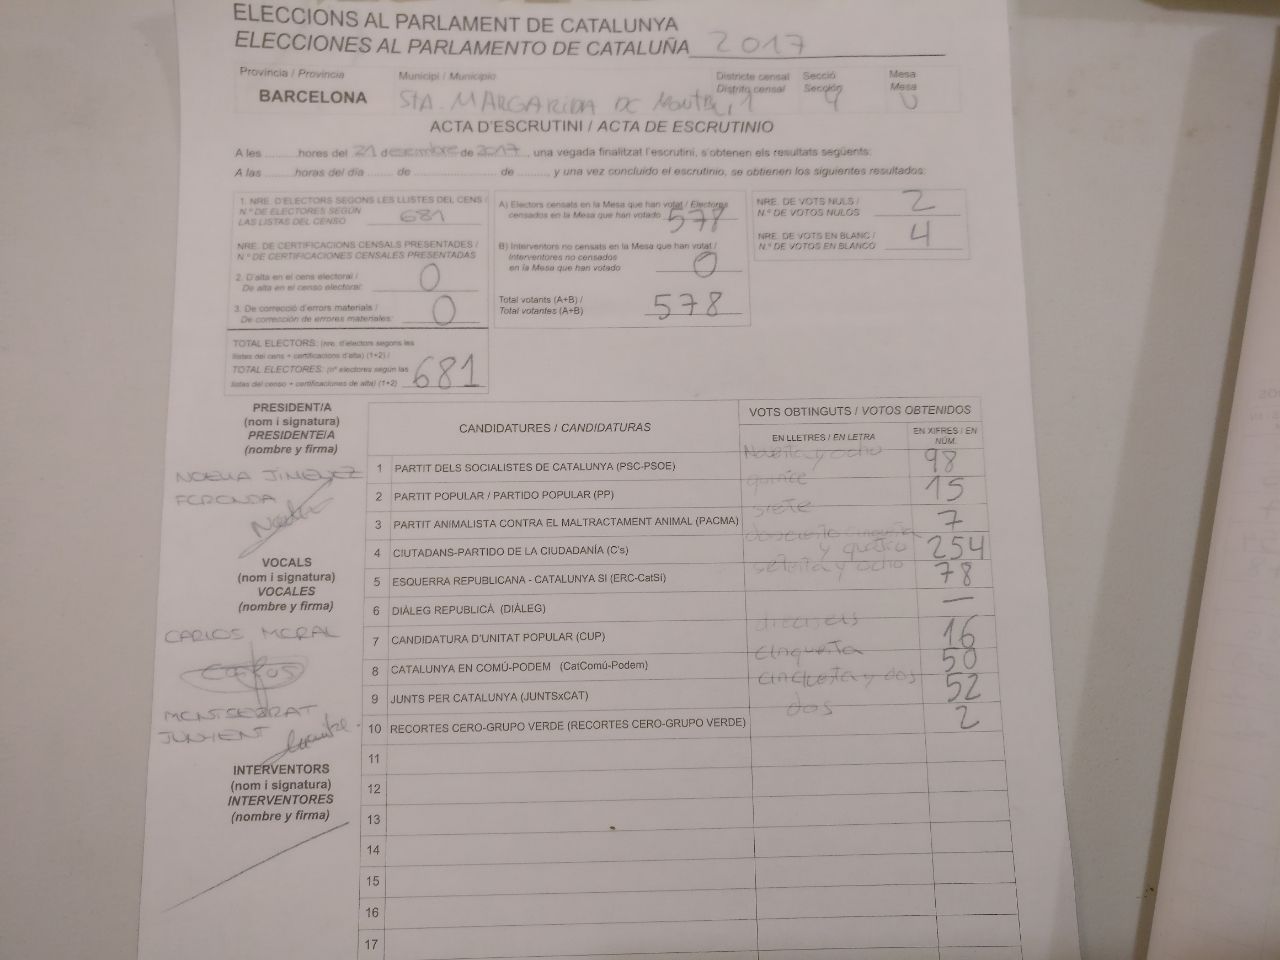 ELECCIONS AL PARLAMENT DE CATALUNYA
ELECCIONES AL PARLAMENTO DE CATALUÑA 2017
Provincia / Provincia
BARCELONA
Municipi / Municipio
STA. MARGARIDA DE MONTBUI
Districte censal
Distrito censal
1
Secció
Sección
4
Mesa
Mesa
U
ACTA D'ESCRUTINI / ACTA DE ESCRUTINIO
A les ......... hores del 21 desembre de 2017, una vegada finalitzat l'escrutini, s'obtenen els resultats següents:
A las ......... horas del día ........ de ........................ de ........, y una vez concluido el escrutinio, se obtienen los siguientes resultados:
1. NRE. D'ELECTORS SEGONS LES LLISTES DEL CENS /
N.º DE ELECTORES SEGÚN
LAS LISTAS DEL CENSO 681
NRE. DE CERTIFICACIONS CENSALS PRESENTADES /
N.º DE CERTIFICACIONES CENSALES PRESENTADAS
2. D'alta en el cens electoral /
De alta en el censo electoral: 0
3. De correcció d'errors materials /
De corrección de errores materiales: 0
TOTAL ELECTORS: (nre. d'electors segons les
llistes del cens + certificacions d'alta) (1+2) /
TOTAL ELECTORES: (nº electores según las
listas del censo + certificaciones de alta) (1+2) 681
A) Electors censats en la Mesa que han votat / Electores
censados en la Mesa que han votado 578
B) Interventors no censats en la Mesa que han votat /
Interventores no censados
en la Mesa que han votado 0
Total votants (A+B) /
Total votantes (A+B) 578
NRE. DE VOTS NULS /
N.º DE VOTOS NULOS 2
NRE. DE VOTS EN BLANC /
N.º DE VOTOS EN BLANCO 4
PRESIDENT/A
(nom i signatura)
PRESIDENTE/A
(nombre y firma)
NOELIA JIMENEZ
VOCALS
(nom i signatura)
VOCALES
(nombre y firma)
CARLOS MORAL
MONTSERRAT
JUNYENT
INTERVENTORS
(nom i signatura)
INTERVENTORES
(nombre y firma)
CANDIDATURES / CANDIDATURAS
VOTS OBTINGUTS / VOTOS OBTENIDOS
EN LLETRES / EN LETRA
EN XIFRES / EN NÚM.
1 PARTIT DELS SOCIALISTES DE CATALUNYA (PSC-PSOE) Noventa y ocho 98
2 PARTIT POPULAR / PARTIDO POPULAR (PP) quince 15
3 PARTIT ANIMALISTA CONTRA EL MALTRACTAMENT ANIMAL (PACMA) siete 7
4 CIUTADANS-PARTIDO DE LA CIUDADANÍA (C's) y quatro 254
5 ESQUERRA REPUBLICANA - CATALUNYA SÍ (ERC-CatSí) setenta y ocho 78
6 DIÀLEG REPUBLICÀ (DIÀLEG) —
7 CANDIDATURA D'UNITAT POPULAR (CUP) dieciseis 16
8 CATALUNYA EN COMÚ-PODEM (CatComú-Podem) cinquenta 50
9 JUNTS PER CATALUNYA (JUNTSxCAT) cinquenta y dos 52
10 RECORTES CERO-GRUPO VERDE (RECORTES CERO-GRUPO VERDE) dos 2
11
12
13
14
15
16
17